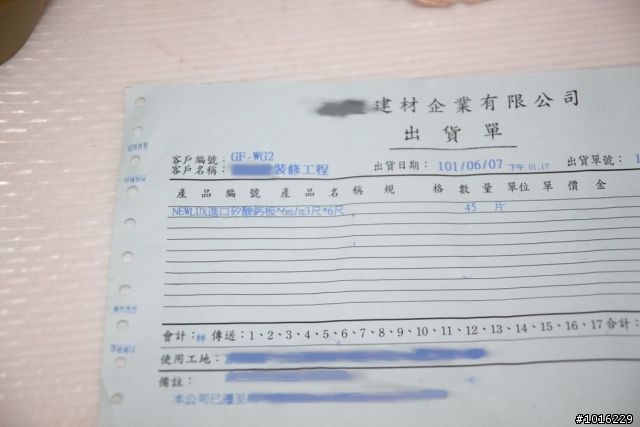 建材企業有限公司
出貨單
客戶編號：GF-WG2
客戶名稱：裝修工程
出貨日期：101/06/07 下午 01:17 出貨單號：1
產品編號 產品名稱 規格 數量 單位 單價 金
NEWLUX進口矽酸鈣板^6m/m3尺*6尺 45 片
會計：林 傳送：1、2、3、4、5、6、7、8、9、10、11、12、13、14、15、16、17 合計：
使用工地：
備註：
本公司已遷至
#1016229